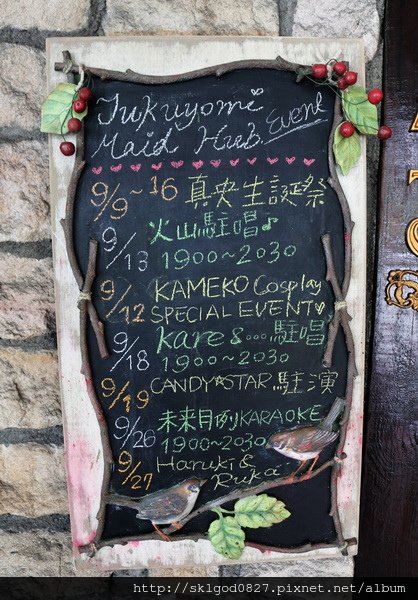 Tukuyomi
Maid Hub. Event
9/9~16 真央生誕祭
火山駐唱♪
9/13 1900~2030
KAMEKO Cosplay
9/12 SPECIAL EVENT♡
kare&...駐唱
9/18 1900~2030
9/19 CANDY☆STAR 駐演
未来月例KARAOKE
9/26 1900~2030
Haruki &
9/27 Ruka
http://sklgod0827.pixnet.net/album